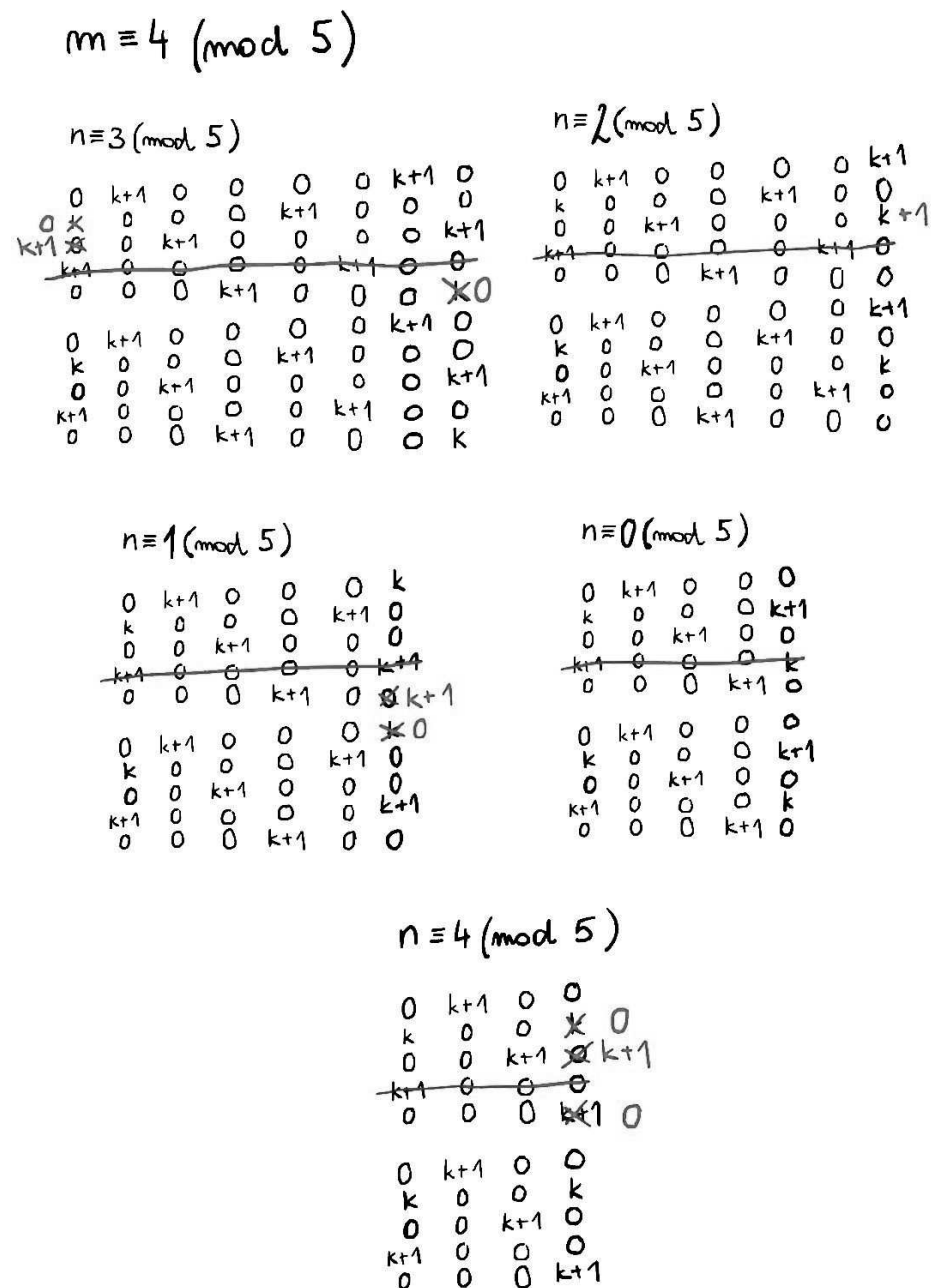 m ≡ 4 (mod 5)
n≡3 (mod 5)
0 k+1 0 0 0 0 k+1 0
0 k 0 0 0 k+1 0 0 0
k+1 0 0 k+1 0 0 0 0 k+1
k+1 0 0 0 0 k+1 0 0
0 0 0 k+1 0 0 0 k 0
0 k+1 0 0 0 0 k+1 0
k 0 0 0 k+1 0 0 0
0 0 k+1 0 0 0 0 k+1
k+1 0 0 0 0 k+1 0 0
0 0 0 k+1 0 0 0 k
n≡2 (mod 5)
0 k+1 0 0 0 0 k+1
k 0 0 0 k+1 0 0
0 0 k+1 0 0 0 k+1
k+1 0 0 0 0 k+1 0
0 0 0 k+1 0 0 0
0 k+1 0 0 0 0 k+1
k 0 0 0 k+1 0 0
0 0 k+1 0 0 0 k
k+1 0 0 0 0 k+1 0
0 0 0 k+1 0 0 0
n≡1 (mod 5)
0 k+1 0 0 0 k
k 0 0 0 k+1 0
0 0 k+1 0 0 0
k+1 0 0 0 0 k+1
0 0 0 k+1 0 0 k+1
0 k+1 0 0 0 k 0
k 0 0 0 k+1 0
0 0 k+1 0 0 0
k+1 0 0 0 0 k+1
0 0 0 k+1 0 0
n≡0 (mod 5)
0 k+1 0 0 0
k 0 0 0 k+1
0 0 k+1 0 0
k+1 0 0 0 k
0 0 0 k+1 0
0 k+1 0 0 0
k 0 0 0 k+1
0 0 k+1 0 0
k+1 0 0 0 k
0 0 0 k+1 0
n ≡ 4 (mod 5)
0 k+1 0 0
k 0 0 k 0
0 0 k+1 0 k+1
k+1 0 0 0
0 0 0 k+1 0
0 k+1 0 0
k 0 0 k
0 0 k+1 0
k+1 0 0 0
0 0 0 k+1